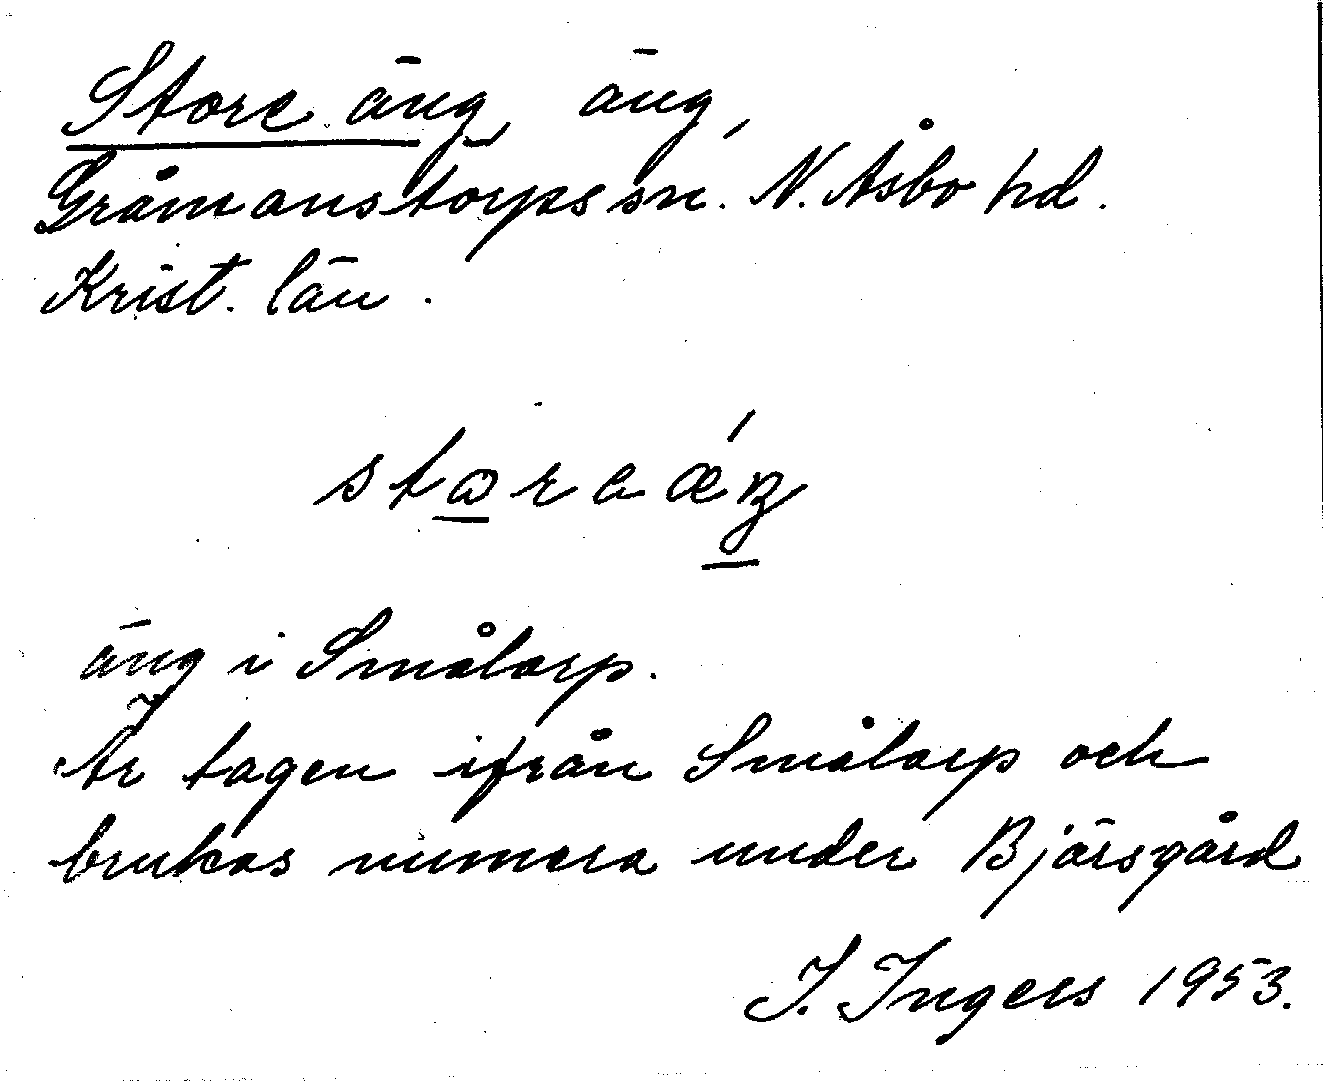 Store äng, äng,
Gråmanstorps sn. N. Åsbo hd.
Krist. län.
äng i Smålarp.
Är tagen ifrån Smålarp och
brukas numera under Bjärsgård
I. Ingers 1953.